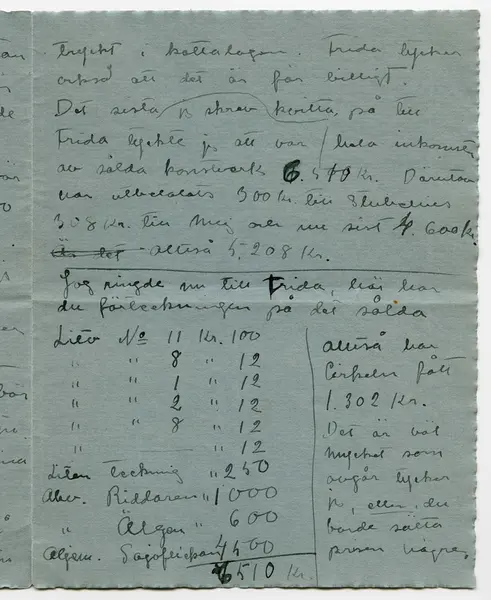 tryckt i kattalogen. Frida tycker
också att det är för billigt.
Det sista jg skrev kvitta på till
Frida tyckte jg att var hela inkomsten
av sålda konstverk 6.510 Kr. Därutav
har utbetalats 300 Kr. till
308 Kr. till mig och nu sist 4.600 Kr.
Är det alltså 5.208 Kr.
Jag ringde nu till Frida, här har
du förteckningen på det sålda
Lito No 11 Kr. 100
" " 8 " 12
" " 1 " 12
" " 2 " 12
" " 8 " 12
" " 12
Liten teckning " 250
Akv. Riddaren " 1000
" Älgen " 600
4500
6510 Kr.
alltså har
Cirkeln fått
1.302 Kr.
Det är väl
mycket som
avgår tycker
jg, eller, du
borde sätta
prisen högre